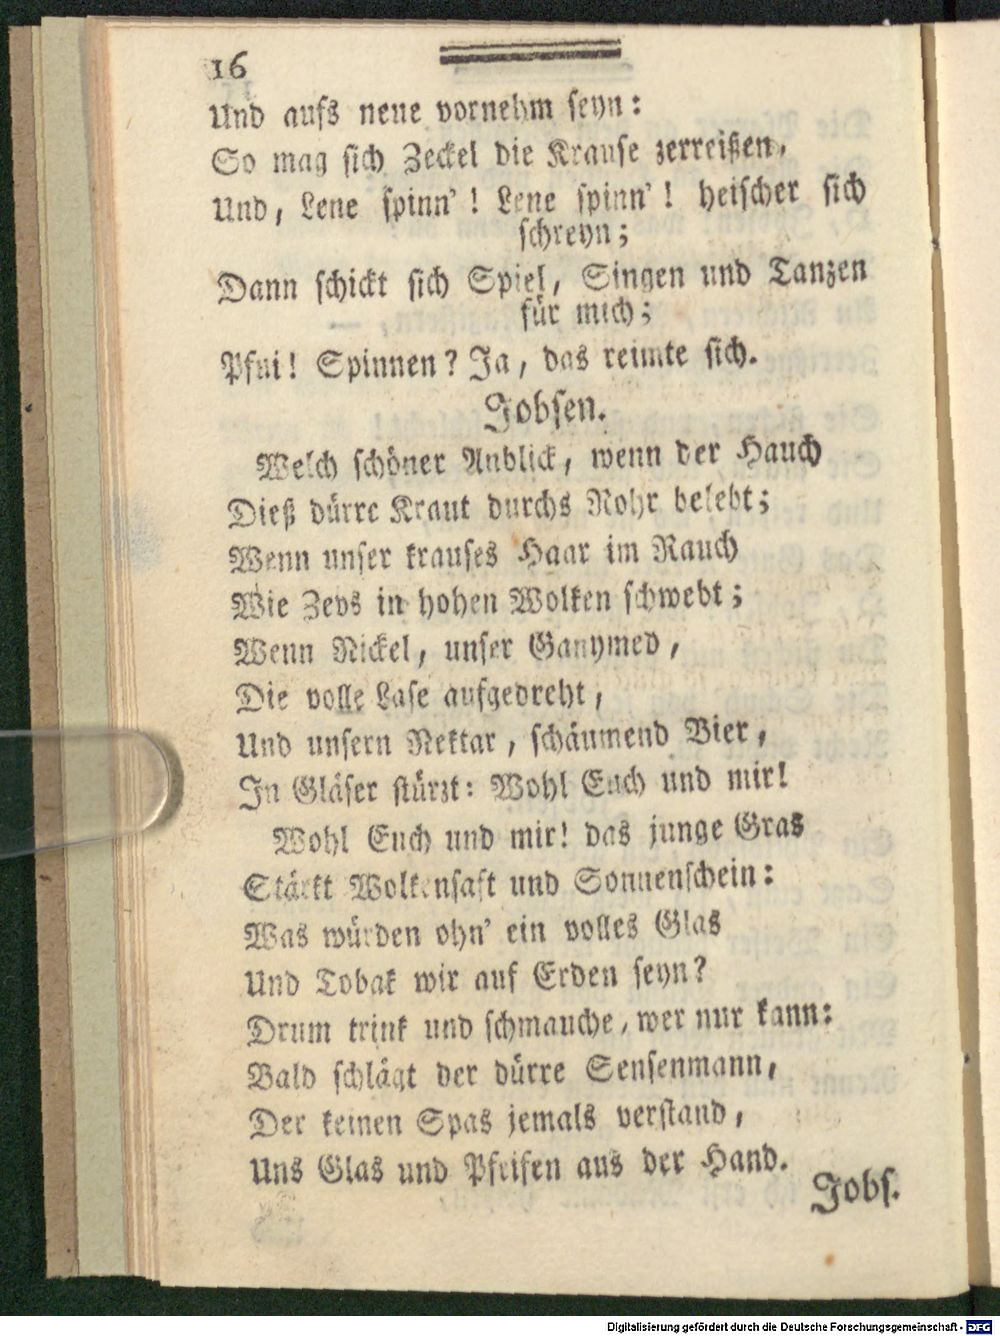 16
Und aufs neue vornehm seyn:
So mag sich Zeckel die Krause zerreißen,
Und, Lene spinn'! Lene spinn'! heischer sich
schreyn;
Dann schickt sich Spiel, Singen und Tanzen
für mich;
Pfui! Spinnen? Ja, das reimte sich.
Jobsen.
Welch schöner Anblick, wenn der Hauch
Dieß dürre Kraut durchs Rohr belebt;
Wenn unser krauses Haar im Rauch
Wie Zevs in hohen Wolken schwebt;
Wenn Nickel, unser Ganymed,
Die volle Lase aufgedreht,
Und unsern Nektar, schäumend Bier,
In Gläser stürzt: Wohl Euch und mir!
Wohl Euch und mir! das junge Gras
Stärkt Wolkensaft und Sonnenschein:
Was würden ohn' ein volles Glas
Und Tobak wir auf Erden seyn?
Drum trink und schmauche, wer nur kann:
Bald schlägt der dürre Sensenmann,
Der keinen Spas jemals verstand,
Uns Glas und Pfeifen aus der Hand.
Jobs.
Digitalisierung gefördert durch die Deutsche Forschungsgemeinschaft - DFG